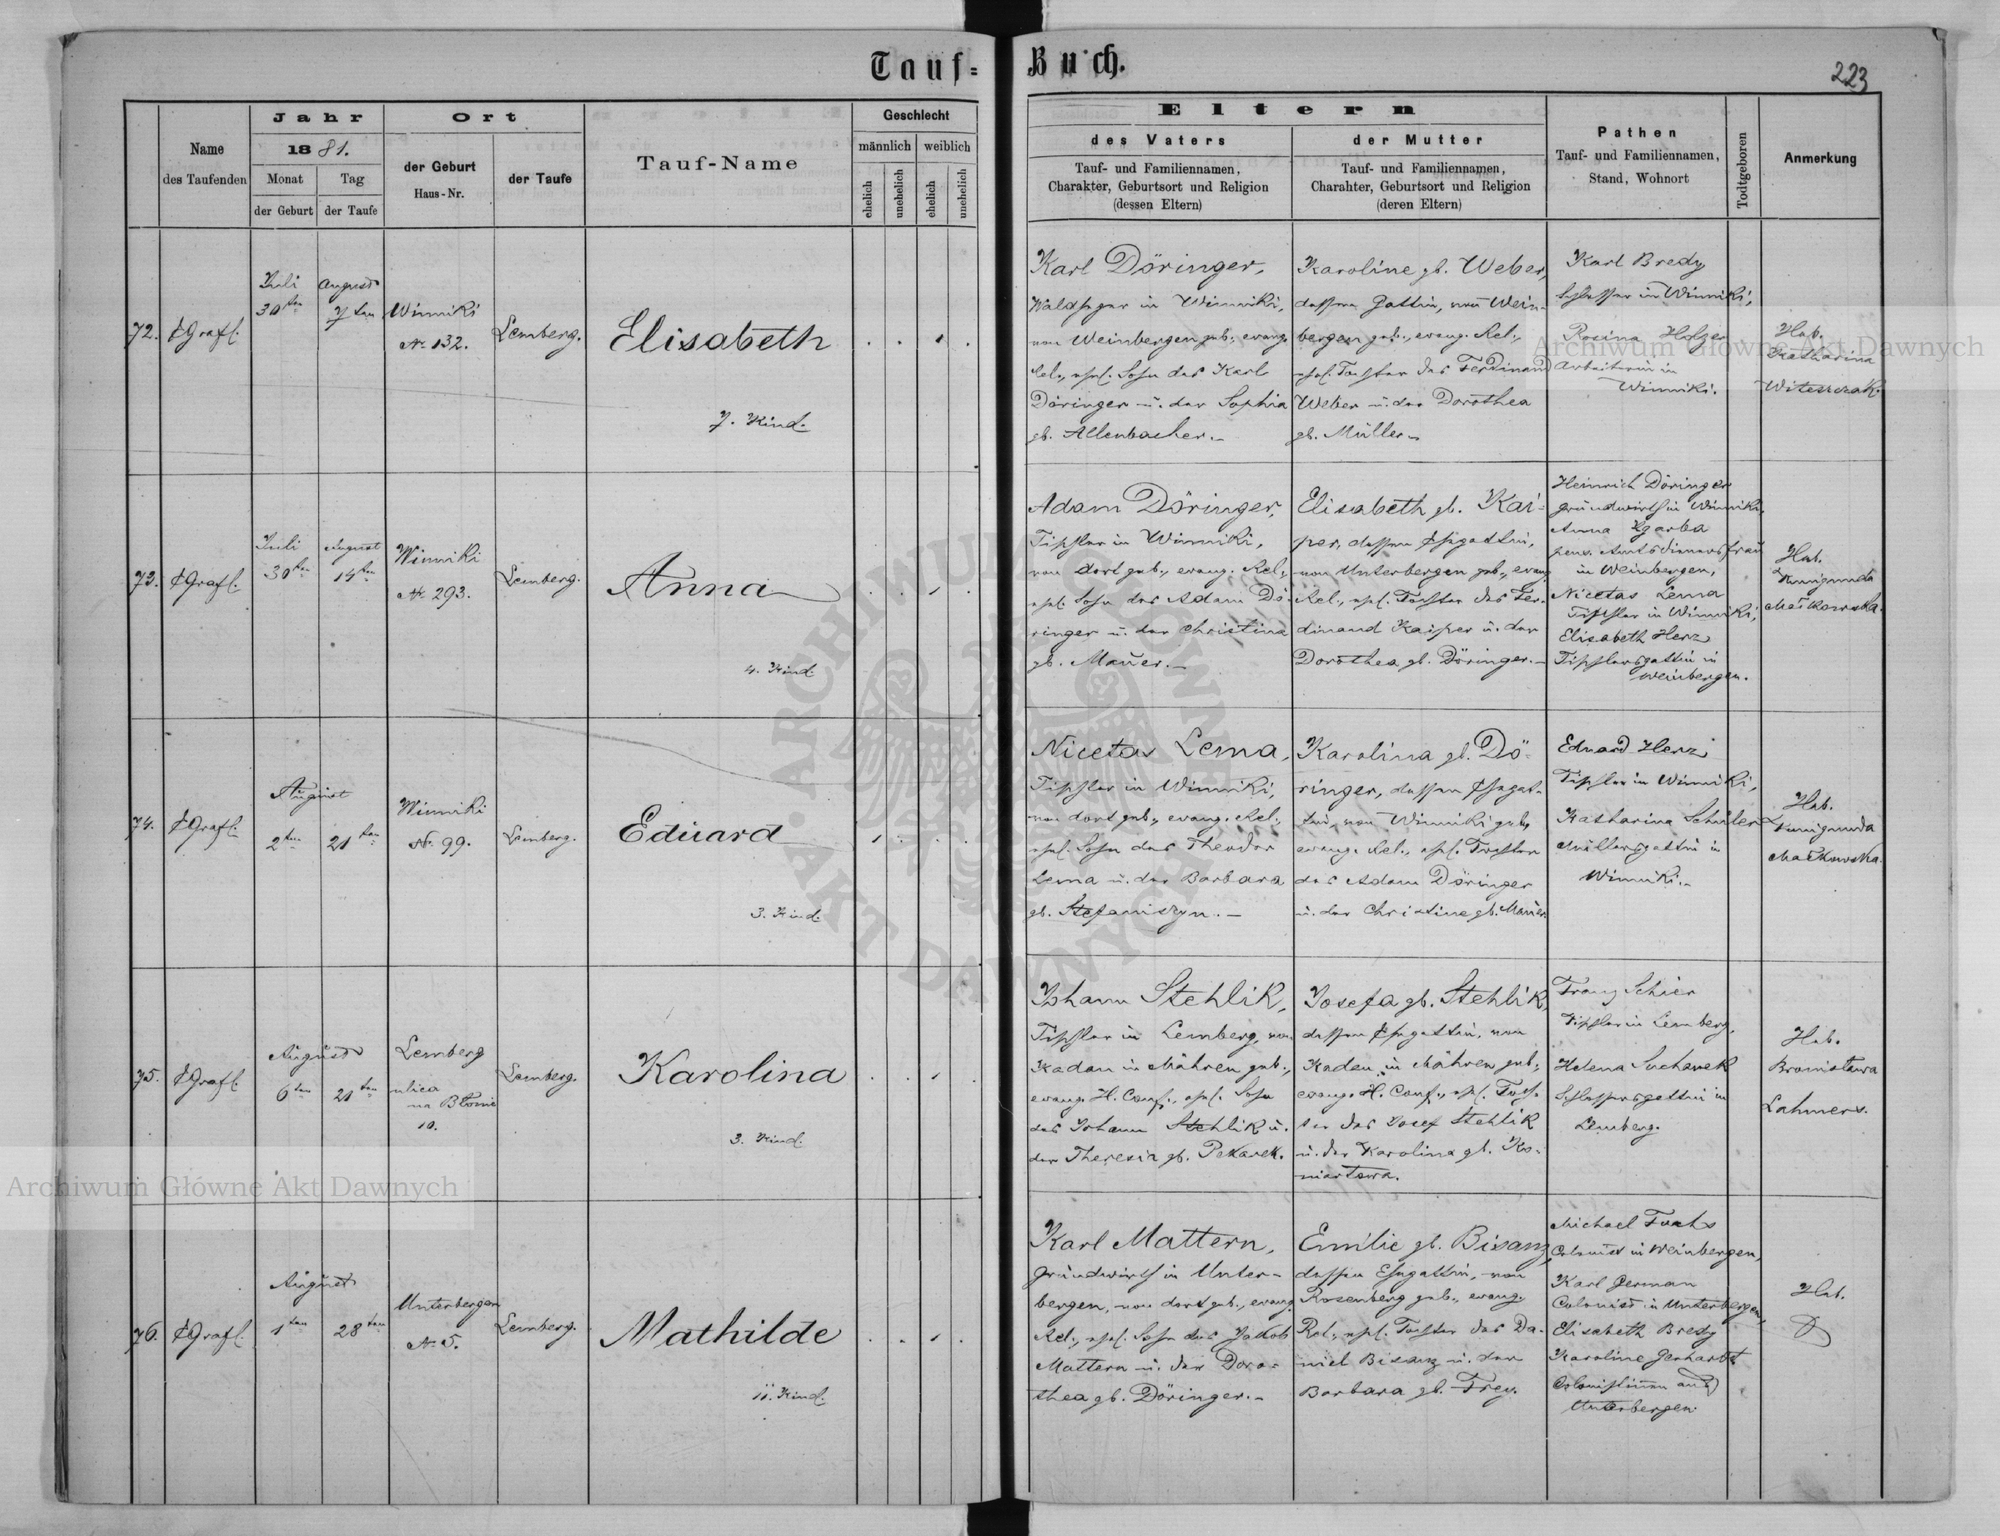 Tauf-Buch.
223
Name
des Taufenden
Jahr
1881.
Monat
der Geburt
Tag
der Taufe
Ort
der Geburt
Haus-Nr.
der Taufe
Tauf-Name
Geschlecht
männlich
weiblich
ehelich
unehelich
ehelich
unehelich
Eltern
des Vaters
Tauf- und Familiennamen,
Charakter, Geburtsort und Religion
(dessen Eltern)
der Mutter
Tauf- und Familiennamen,
Charahter, Geburtsort und Religion
(deren Eltern)
Pathen
Tauf- und Familiennamen,
Stand, Wohnort
Todtgeboren
Anmerkung
72.
Grafl.
Juli
30ten
August
7ten
Winniki
No 132.
Lemberg.
Elisabeth
7. Kind.
Karl Döringer,
Waldheger in Winniki,
von Weinbergen geb., evang.
Rel., ehel. Sohn des Karl
Döringer u. der Sophia
gb. Allenbacher.
Karoline gb. Weber,
dessen Gattin, von Wein-
bergen geb., evang. Rel.,
ehel. Tochter des Ferdinand
Weber u. der Dorothea
gb. Müller.
Karl Bredy
Schlosser in Winniki,
Rosina Holzer
Arbeiterin in
Winniki.
Heb.
Katharina
73.
Grafl.
Juli
30ten
August
14ten
Winniki
No 293.
Lemberg.
Anna
4. Kind
Adam Döringer,
Tischler in Winniki,
von dort geb., evang. Rel.,
ehel. Sohn des Adam Dö-
ringer u. der Christina
gb. Mauer.
Elisabeth gb. Kai-
per, dessen Ehegattin,
von Unterbergen geb., evang.
Rel., ehel. Tochter des Fer-
dinand Kaiper u. der
Dorothea gb. Döringer.
Heinrich Döringer
Grundwirth in Winniki,
Anna
pens. Amtsdienersfrau
in Weinbergen,
Nicetas Lema
Tischler in Winniki,
Elisabeth Herz
Tischlersgattin in
Weinbergen.
Heb.
Kunigunda
Maćkowska.
74.
Grafl.
August
2ten
21ten
Winniki
No 99.
Lemberg.
Eduard
3. Kind.
Nicetas Lema,
Tischler in Winniki,
von dort geb., evang. Rel.,
ehel. Sohn des Theodor
Lema u. der Barbara
gb. Stefaniszyn.
Karolina gb. Dö-
ringer, dessen Ehegat-
tin, von Winniki geb.,
evang. Rel., ehel. Tochter
des Adam Döringer
u. der Christine gb. Mauer.
Eduard Herz
Tischler in Winniki,
Katharina Schuler
Müllersgattin in
Winniki.
Heb.
Kunigunda
Maćkowska.
75.
Grafl.
August
6ten
21ten
Lemberg
ulica
na Błonie
10.
Lemberg.
Karolina
3. Kind.
Johann Stehlik,
Tischler in Lemberg, von
Kadau in Mähren geb.,
evang. H. Conf., ehel. Sohn
des Johann Stehlik u.
der Theresia gb. Pekarek.
Josefa gb. Stehlik,
dessen Ehegattin, von
Kadau in Mähren geb.,
evang. H. Conf., ehel. Toch-
ter des Josef Stehlik
u. der Karolina gb. Ko-
Franz Schier
Tischler in Lemberg,
Helena Suchanek
Schlossersgattin in
Lemberg.
Heb.
Bronisława
Lahmers.
76.
Grafl.
August
1ten
28ten
Unterbergen
No 5.
Lemberg.
Mathilde
11. Kind.
Karl Mattern,
Grundwirth in Unter-
bergen, von dort geb., evang.
Rel., ehel. Sohn des Jakob
Mattern u. der Doro-
thea gb. Döringer.
Emilie gb. Bisanz,
dessen Ehegattin, von
Rosenberg geb., evang.
Rel., ehel. Tochter des Da-
niel Bisanz u. der
Barbara gb. Frey.
Michael Fuchs
Colonist in Weinbergen,
Karl German
Colonist in Unterbergen,
Elisabeth Bredy
Karoline Gerhardt
Colonistinnen aus
Unterbergen.
Heb.
Archiwum Główne Akt Dawnych
Archiwum Główne Akt Dawnych
ARCHIWUM GŁÓWNE
AKT DAWNYCH